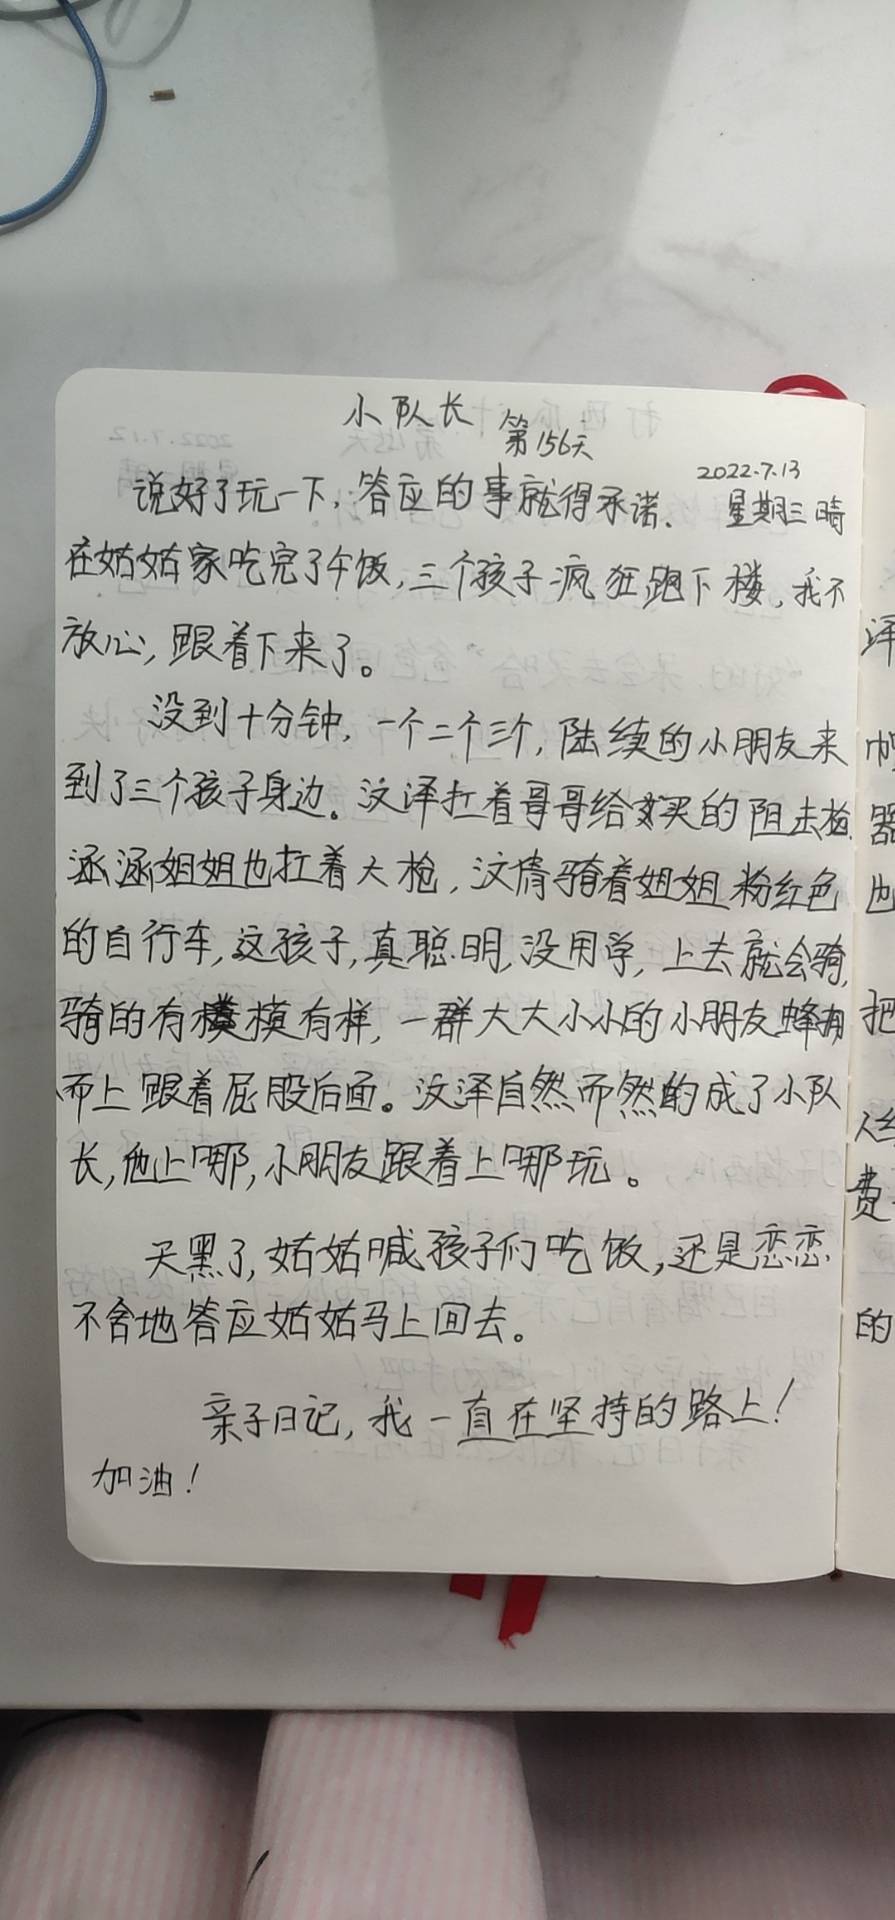 小队长
第156天
2022.7.13
说好了玩一下,答应的事就得承诺、 星期三 晴
在姑姑家吃完了午饭,三个孩子疯狂跑下楼,我不
放心,跟着下来了。
没到十分钟,一个二个三个,陆续的小朋友来
到了三个孩子身边。汶泽扛着哥哥给买的阻击枪
涵涵姐姐也扛着大枪,汶倩骑着姐姐粉红色
的自行车,这孩子,真聪明,没用学,上去就会骑,
骑的有模有样,一群大大小小的小朋友蜂拥
而上跟着屁股后面。汶泽自然而然的成了小队
长,他上哪,小朋友跟着上哪玩。
天黑了,姑姑喊孩子们吃饭,还是恋恋
不舍地答应姑姑马上回去。
亲子日记,我一直在坚持的路上!
加油!
泽
器
也
把
费
的